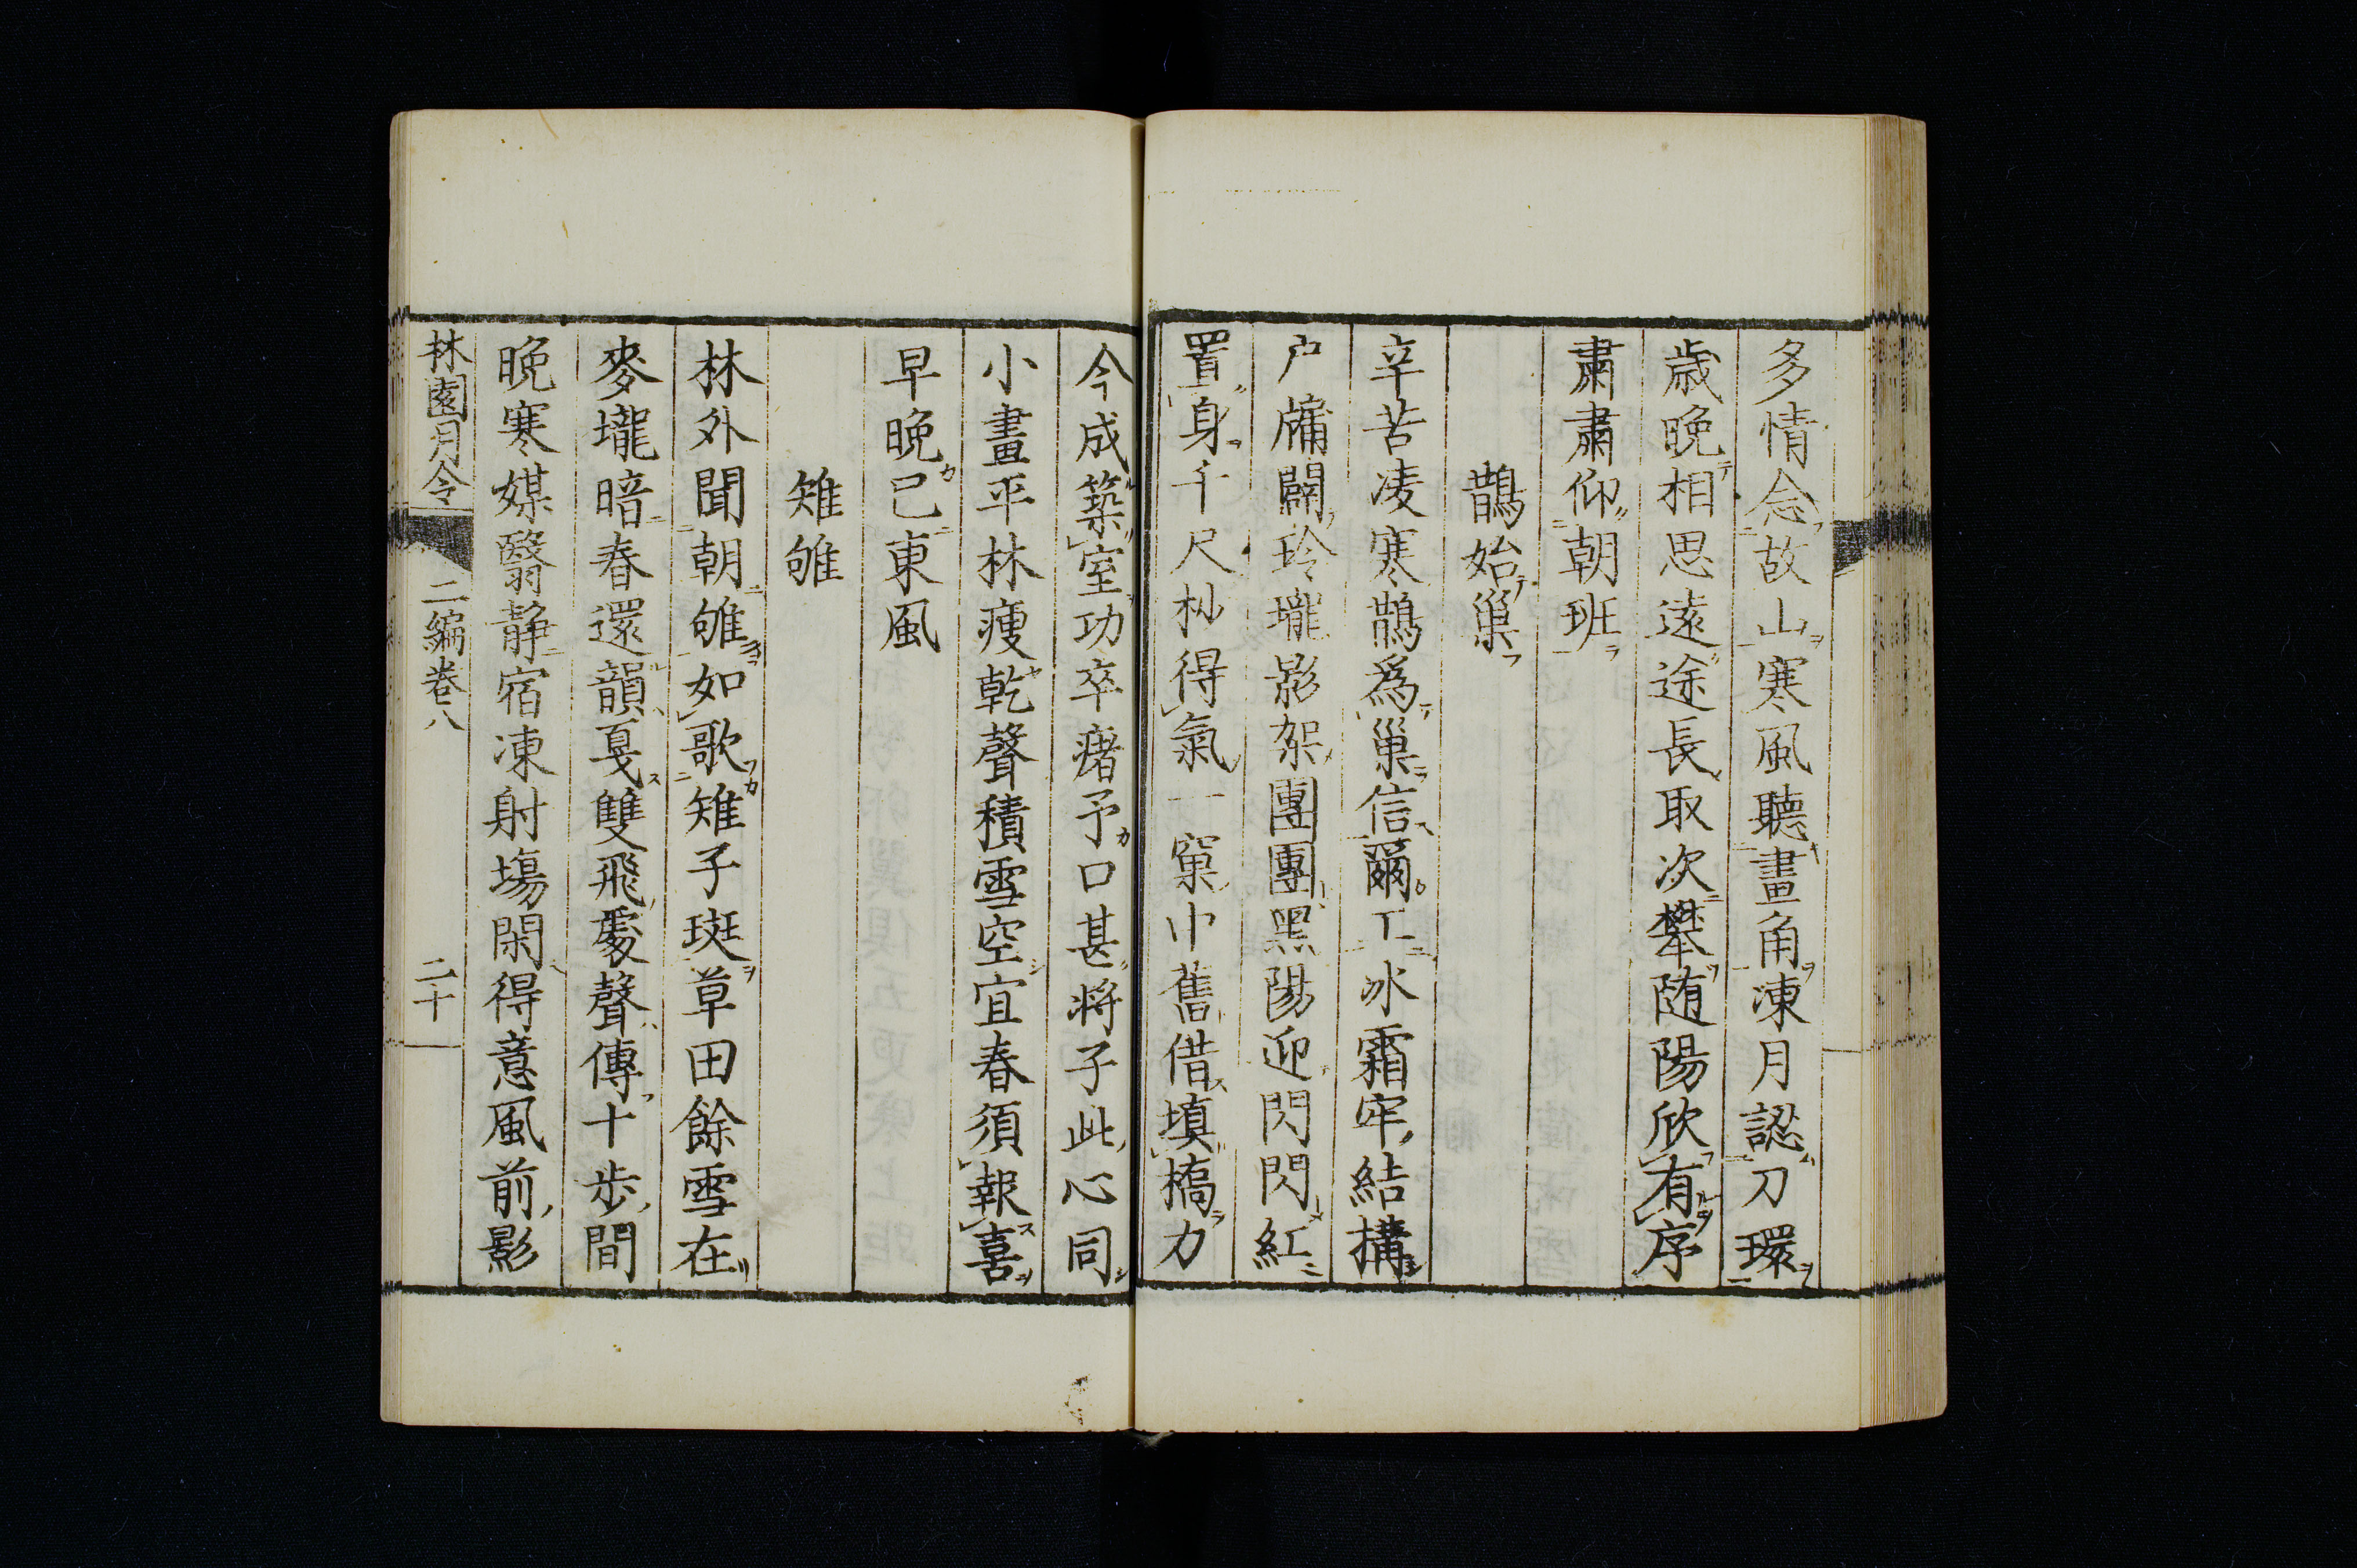 多情念故山寒風聽畫角凍月認刀環
歳晩相思遠途長取次攀随陽欣有序
肅肅仰朝班
鵲始巢
辛苦凌寒鵲爲巢信爾工氷霜牢結構
户牖闢玲瓏影架團團黑陽迎閃閃紅
置身千尺杪得氣一窠中舊借填橋力
今成築室功卒瘏予口甚将子此心同
小畫平林瘦乾聲積雪空宜春須報喜
早晩已東風
雉雊
林外聞朝雊如歌雉子斑草田餘雪在
麥壠暗春還韻戛雙飛處聲傳十歩間
晩寒媒翳静宿凍射場閑得意風前影
林園月令 二編卷八 二十